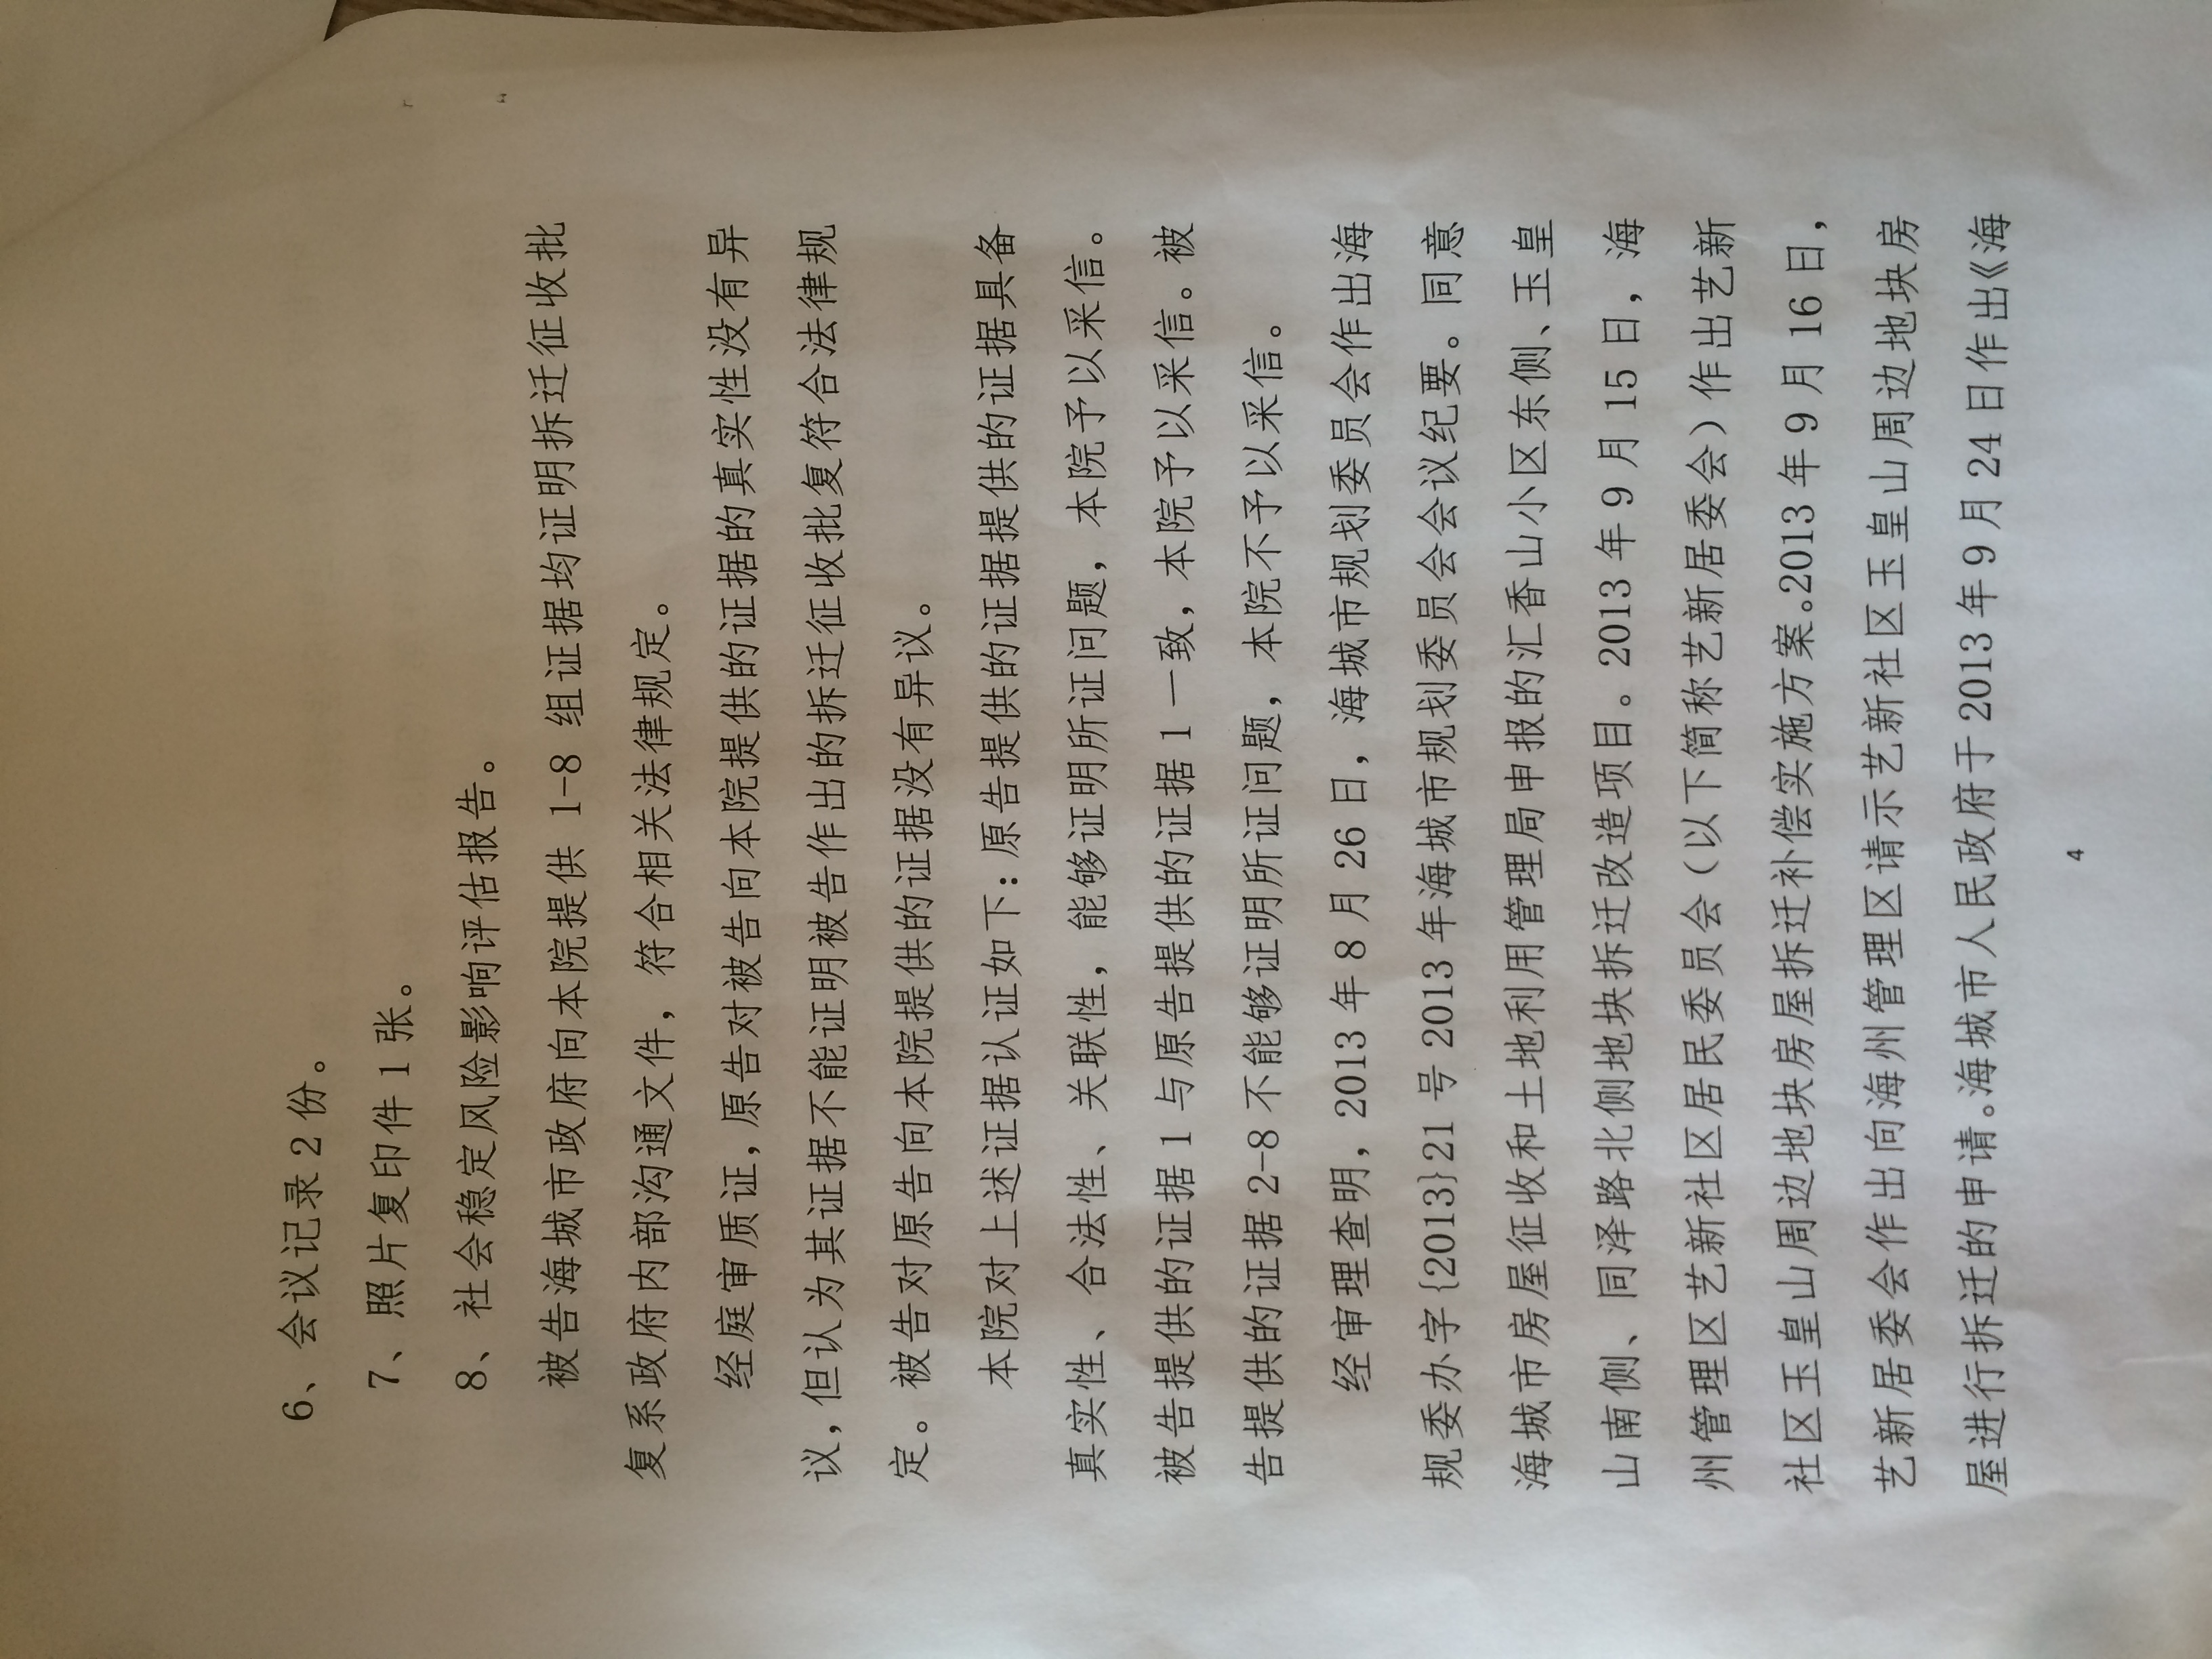 6、会议记录 2 份。
7、照片复印件 1 张。
8、社会稳定风险影响评估报告。
被告海城市政府向本院提供 1-8 组证据均证明拆迁征收批
复系政府内部沟通文件，符合相关法律规定。
经庭审质证，原告对被告向本院提供的证据的真实性没有异
议，但认为其证据不能证明被告作出的拆迁征收批复符合法律规
定。被告对原告向本院提供的证据没有异议。
本院对上述证据认证如下：原告提供的证据提供的证据具备
真实性、合法性、关联性，能够证明所证问题，本院予以采信。
被告提供的证据 1 与原告提供的证据 1 一致，本院予以采信。被
告提供的证据 2-8 不能够证明所证问题，本院不予以采信。
经审理查明，2013 年 8 月 26 日，海城市规划委员会作出海
规委办字{2013}21 号 2013 年海城市规划委员会会议纪要。同意
海城市房屋征收和土地利用管理局申报的汇香山小区东侧、玉皇
山南侧、同泽路北侧地块拆迁改造项目。2013 年 9 月 15 日，海
州管理区艺新社区居民委员会（以下简称艺新居委会）作出艺新
社区玉皇山周边地块房屋拆迁补偿实施方案。2013 年 9 月 16 日，
艺新居委会作出向海州管理区请示艺新社区玉皇山周边地块房
屋进行拆迁的申请。海城市人民政府于 2013 年 9 月 24 日作出《海
4